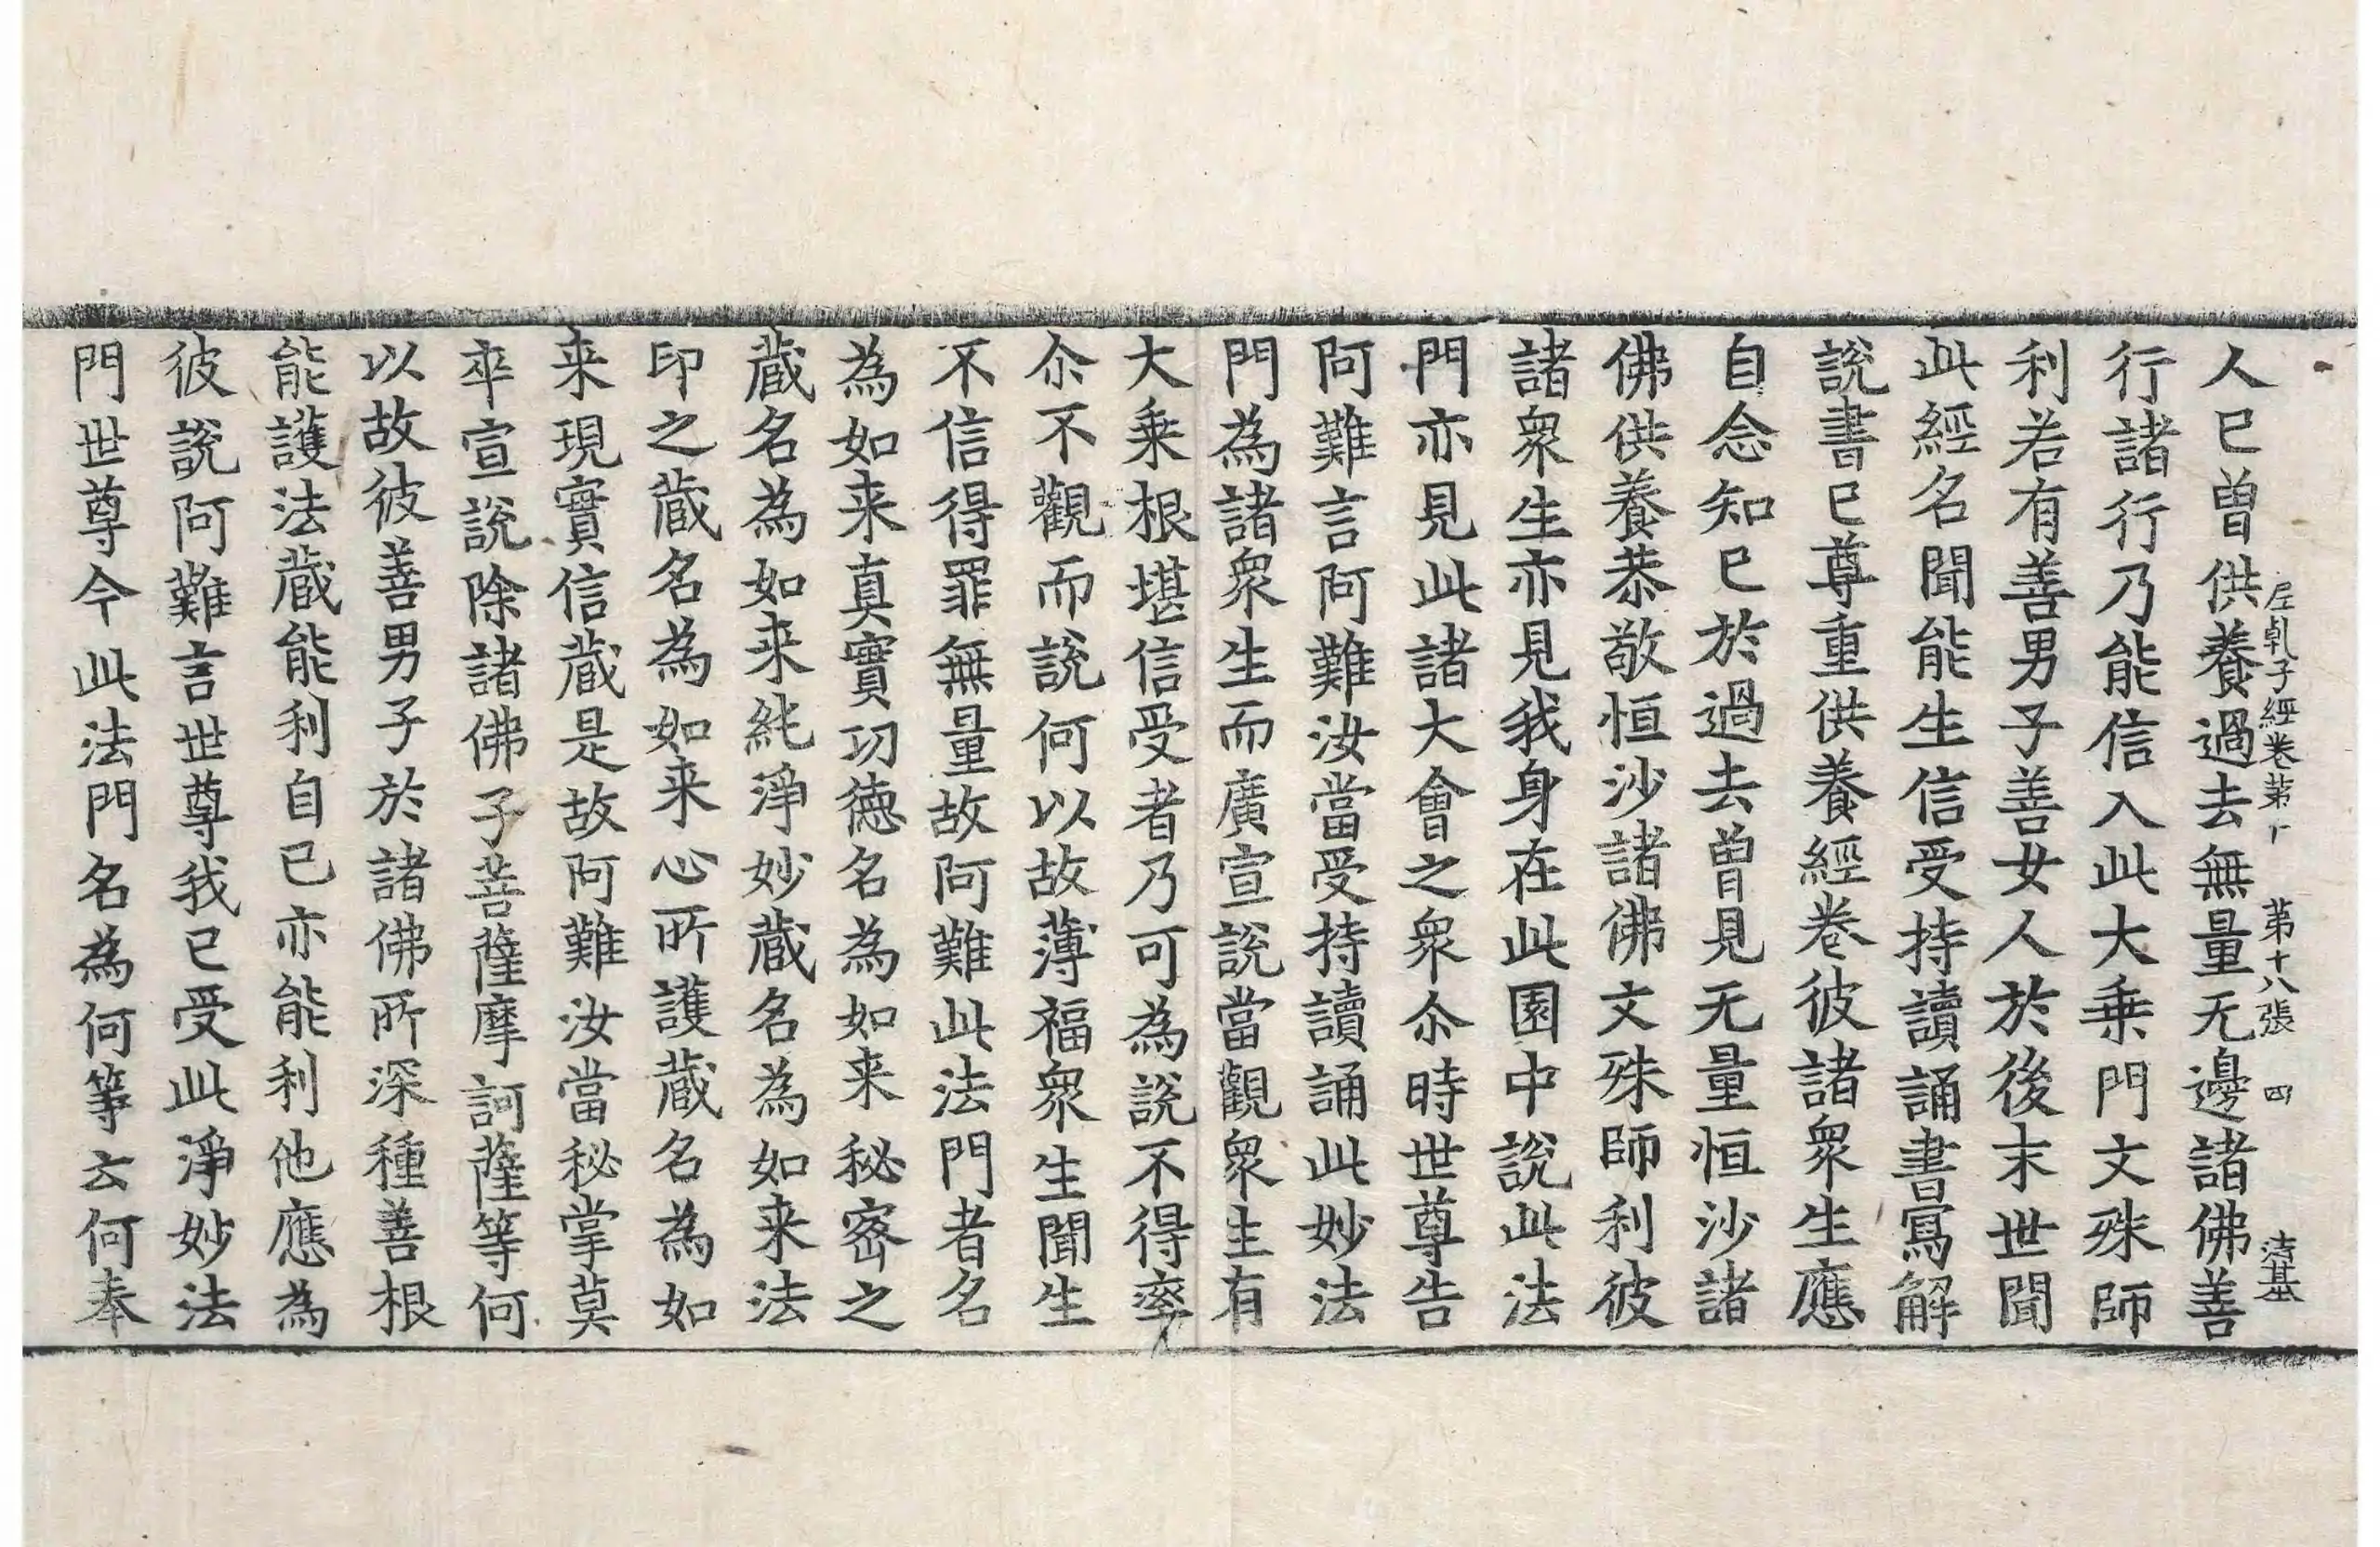 人已曾供養過去無量无邊諸佛善
尼乹子經卷第十 第十八張 四
行諸行乃能信入此大乗門文殊師
利若有善男子善女人於後末世聞
此經名聞能生信受持讀誦書寫解
說書已尊重供養經卷彼諸衆生應
自念知已於過去曾見无量恒沙諸
佛供養恭敬恒沙諸佛文殊師利彼
諸衆生亦見我身在此園中說此法
門亦見此諸大會之衆尒時世尊告
阿難言阿難汝當受持讀誦此妙法
門為諸衆生而廣宣說當觀衆生有
大乗根堪信受者乃可為說不得率
尒不觀而說何以故薄福衆生聞生
不信得罪無量故阿難此法門者名
為如来真實功德名為如来秘密之
蔵名為如来純淨妙蔵名為如来法
印之蔵名為如来心所護蔵名為如
来現實信蔵是故阿難汝當秘掌莫
卒宣說除諸佛子菩薩摩訶薩等何
以故彼善男子於諸佛所深種善根
能護法蔵能利自已亦能利他應為
彼說阿難言世尊我已受此淨妙法
門世尊今此法門名為何等云何奉